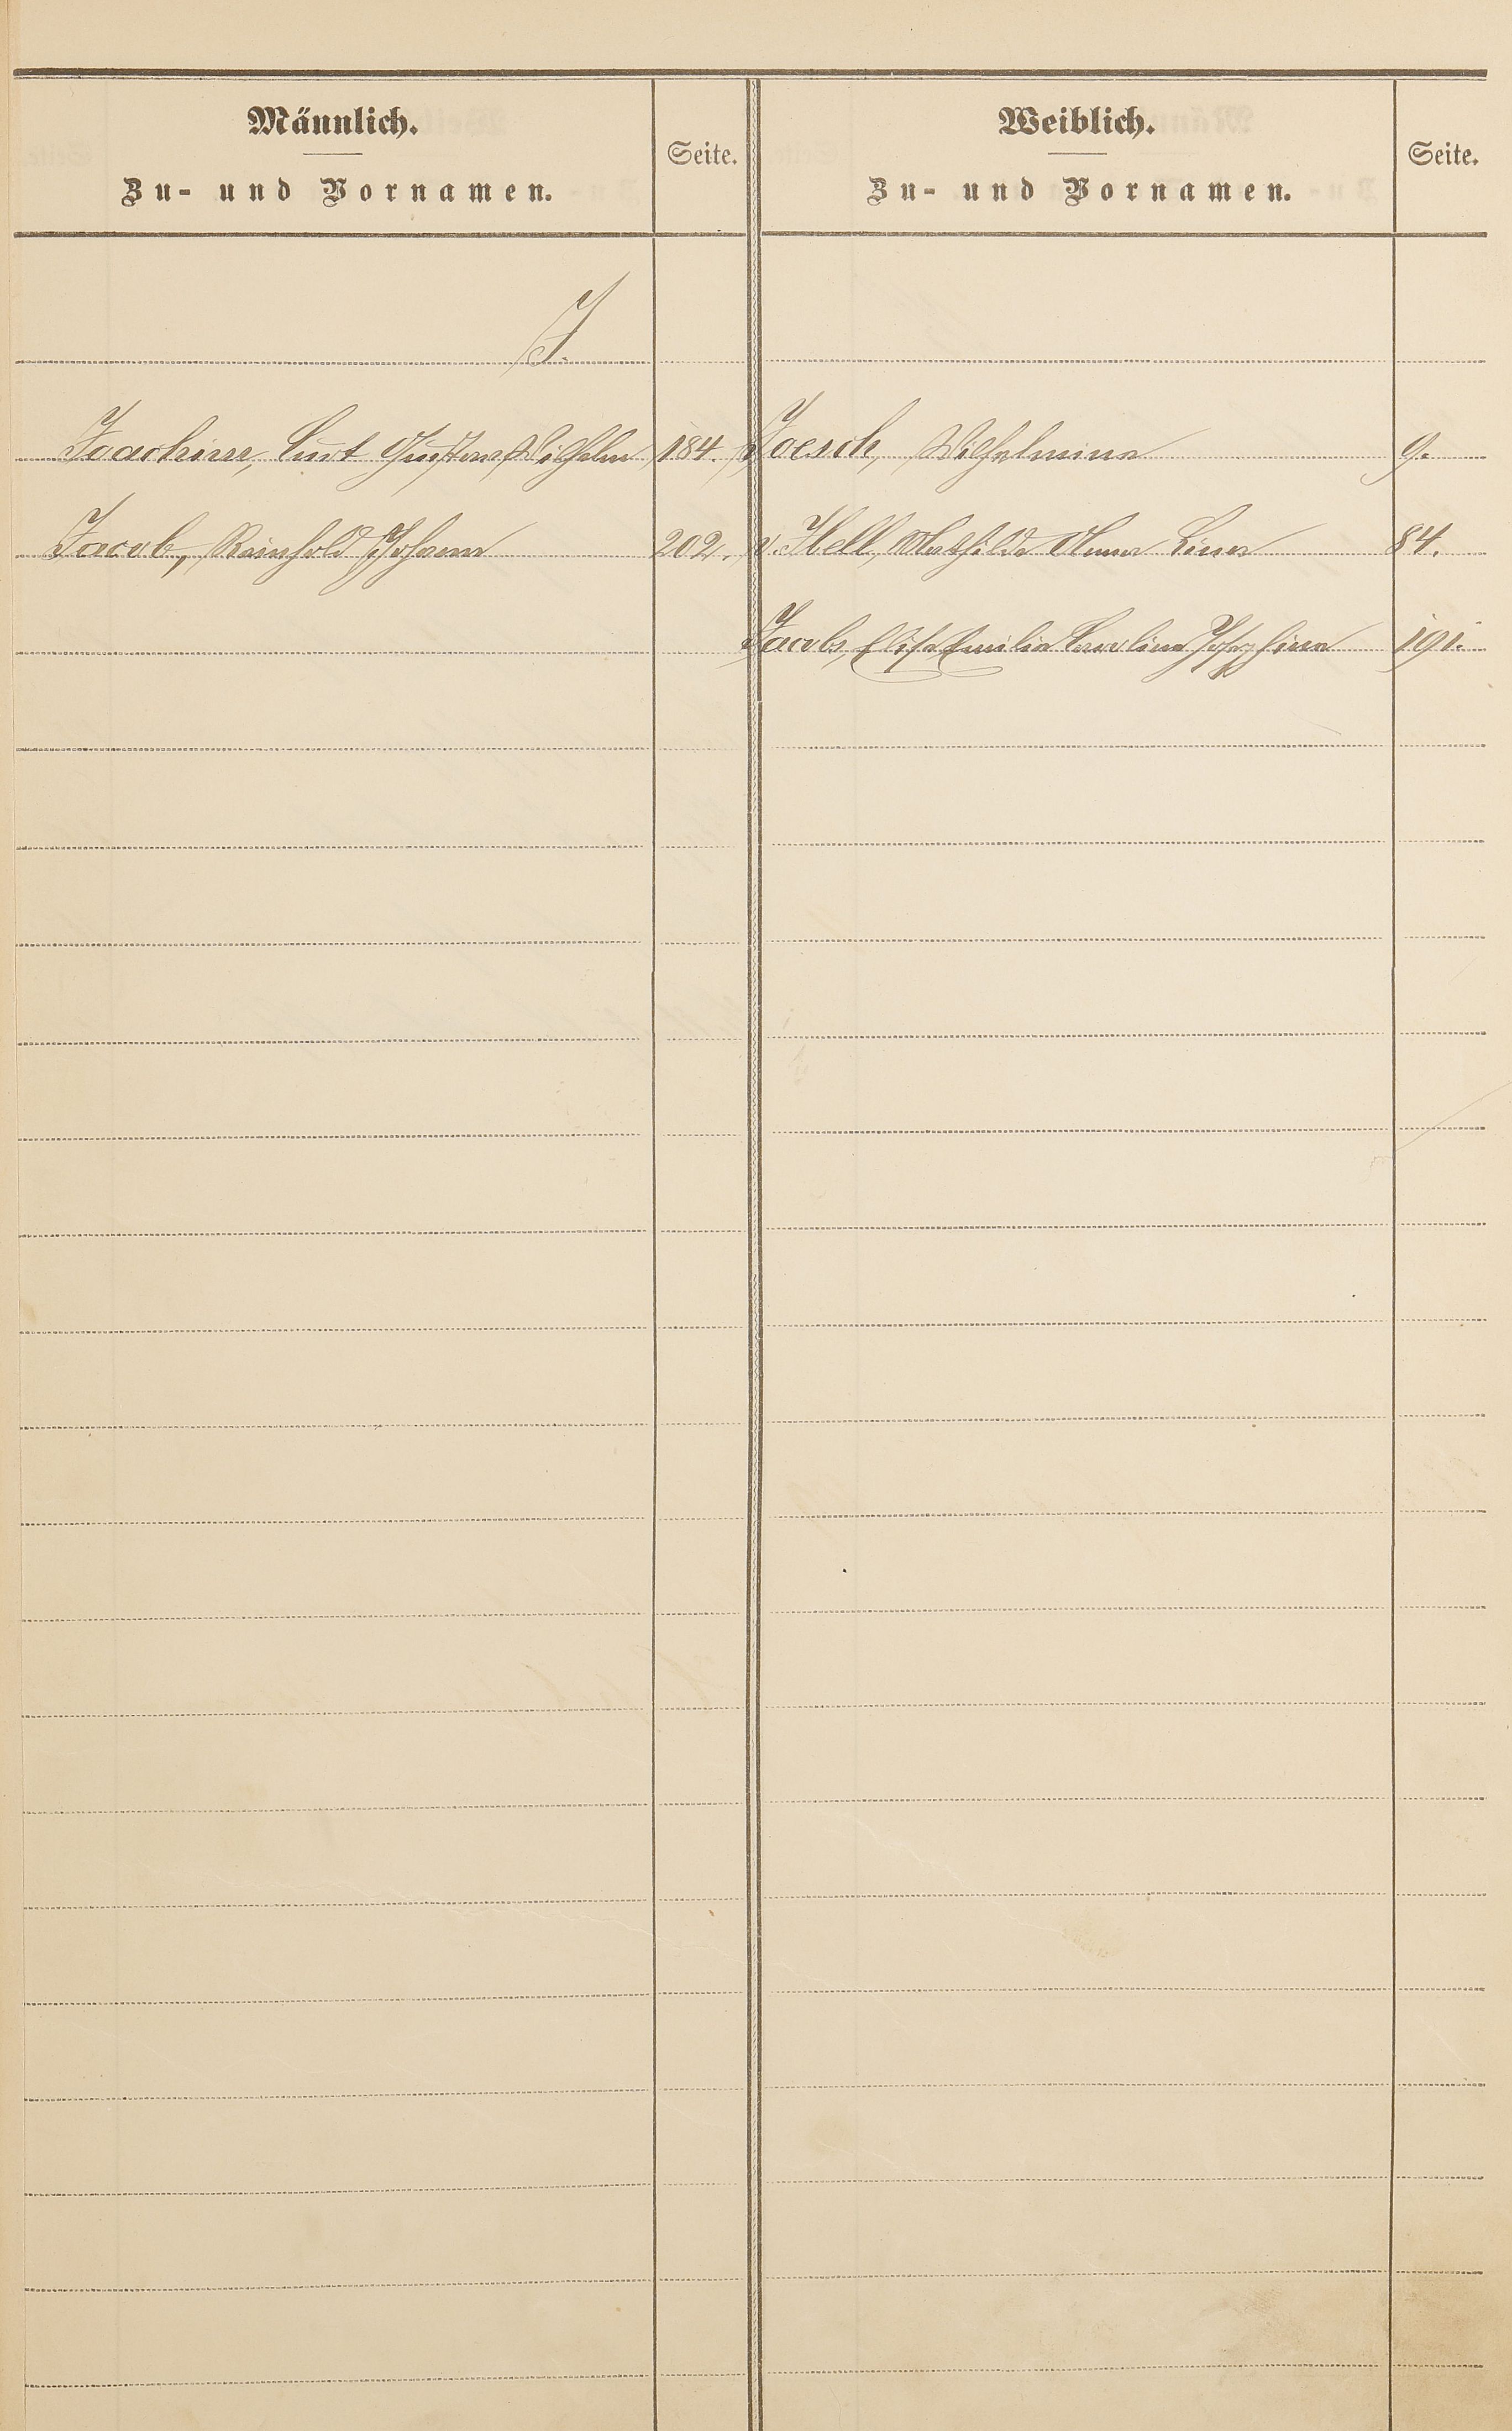 Männlich.
Zu- und Vornamen.
Seite.
Weiblich.
Zu- und Vornamen.
Seite.
J.
Joachim, Curt Gustav Wilhelm 184.
Joesch, Wilhelmine 9.
Jacob, Reinhold Johann 202.
v. Ihell, Mathilde Anna Lina 84.
Jacobs, Elise Emilie Caroline Josephine 191.